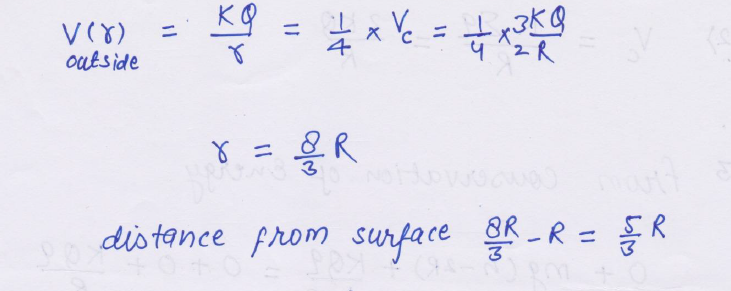 V(r) outside = KQ/r = 1/4 x Vc = 1/4 x 3KQ/2R
r = 8/3 R
distance from surface 8R/3 - R = 5/3 R